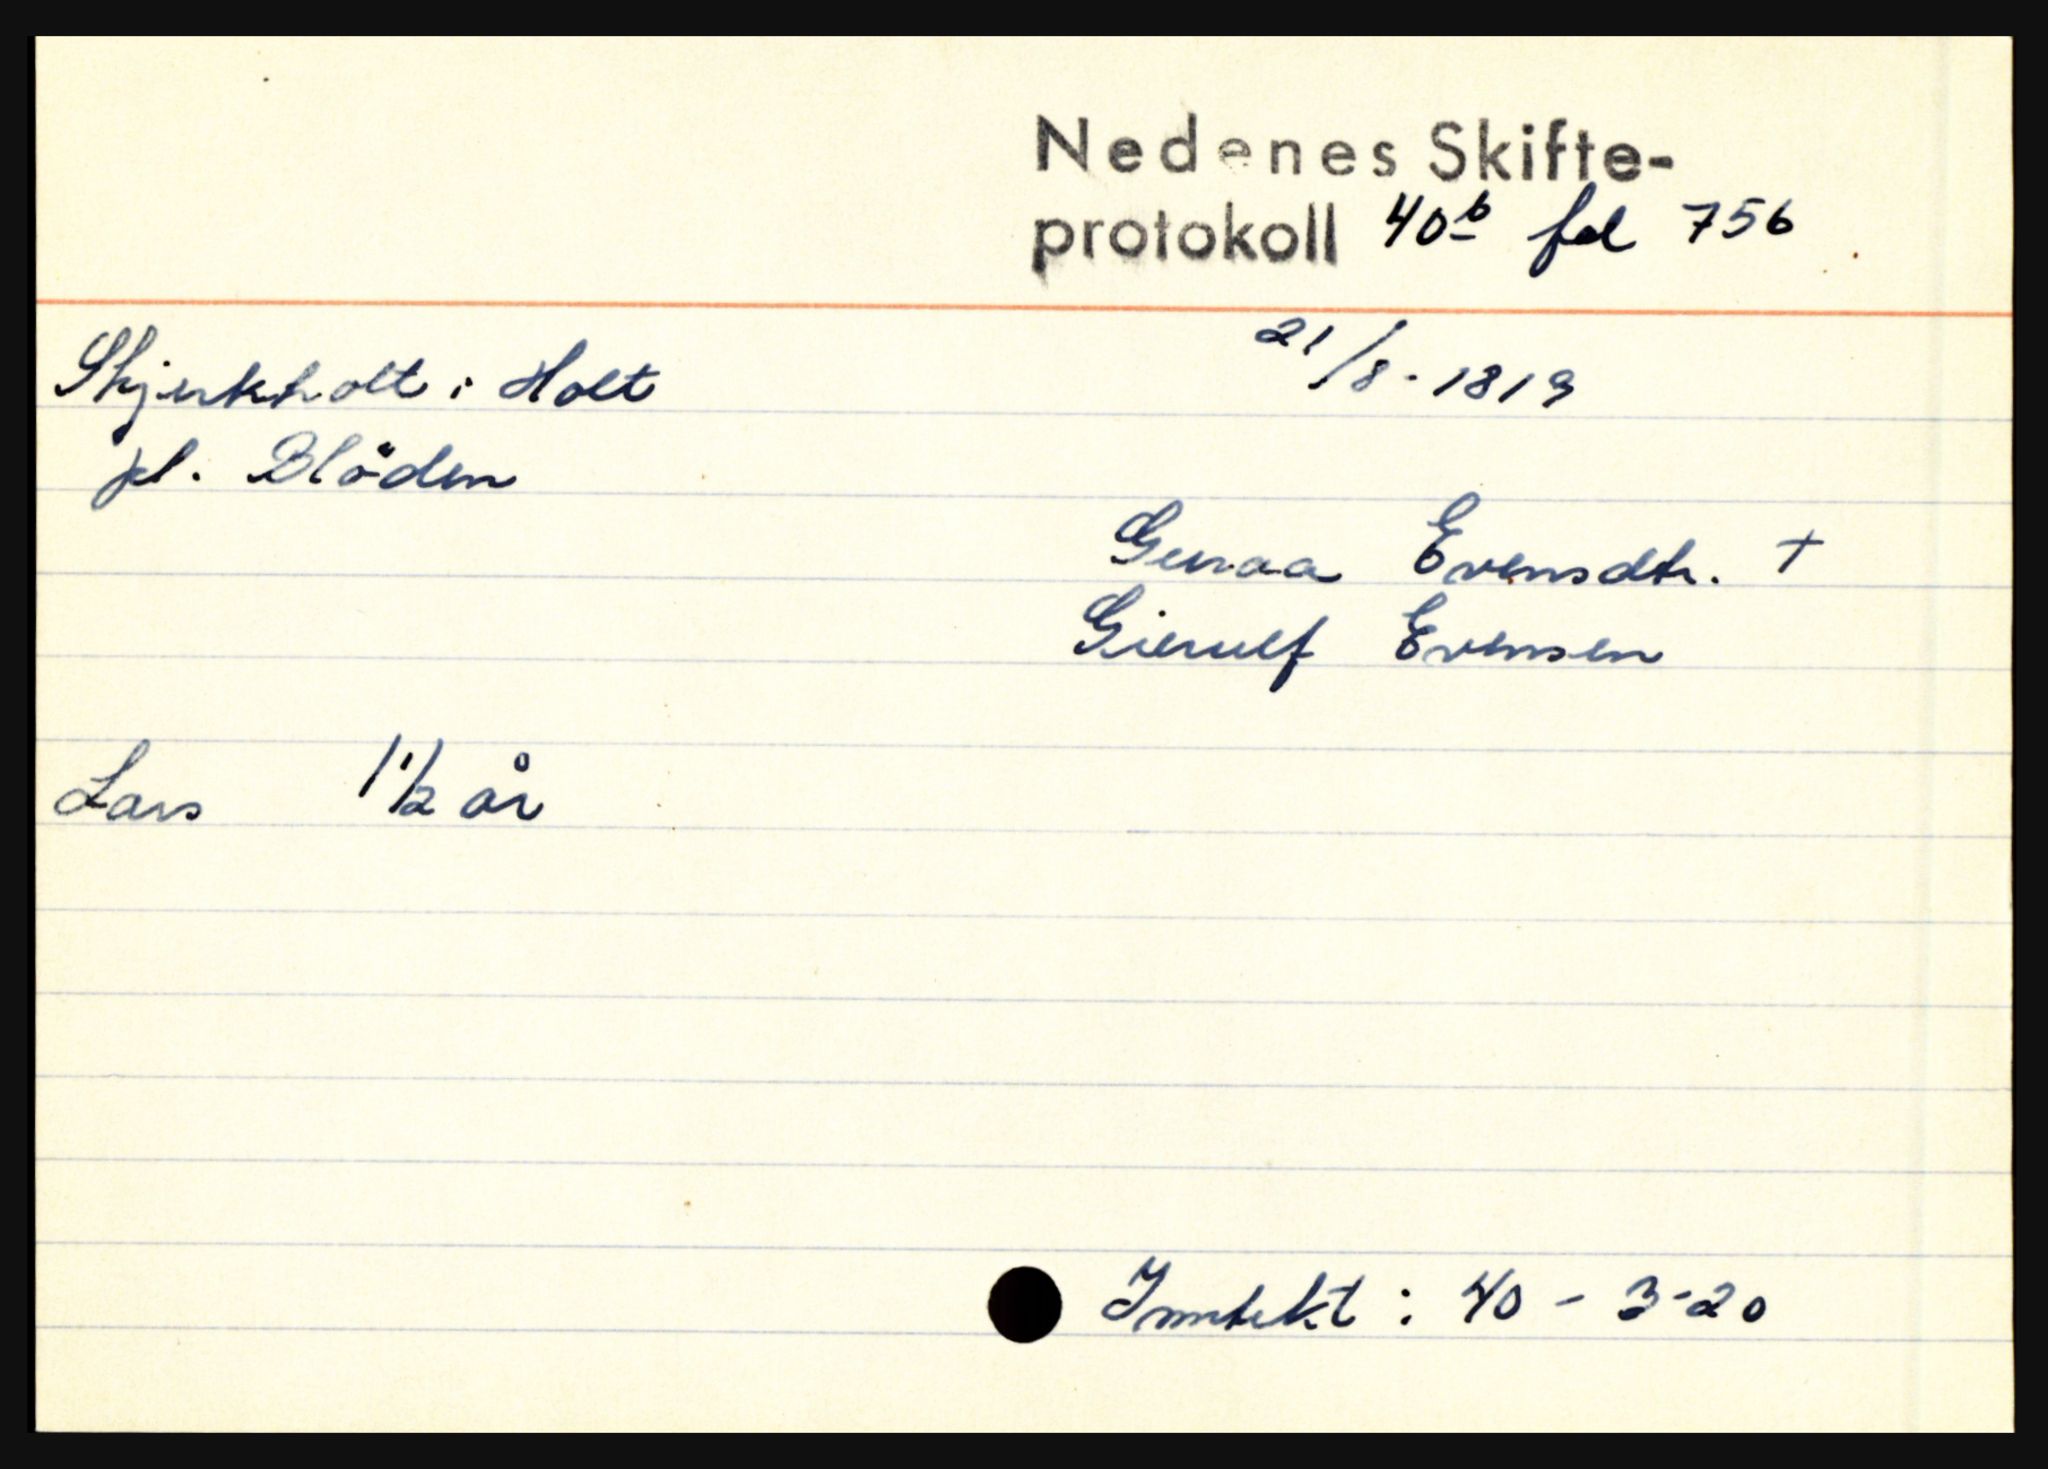 Nedenes Skifte-
protokoll 40b fol 756
Skjerkholt i Holt
21/8 - 1819
pl. Blöden
Gunaa Evensdtr. +
Gierulf Evensen
Lars 1 1/2 år
Inntekt : 40 - 3-20